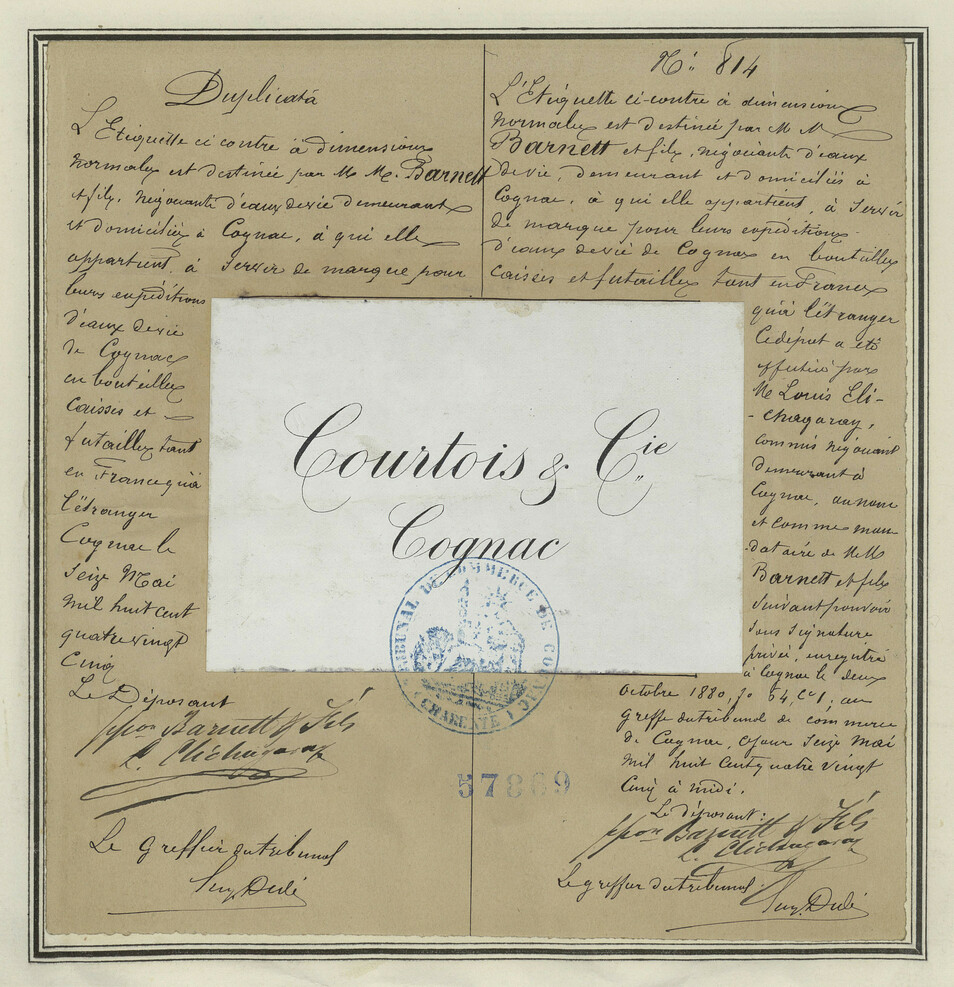 Duplicata
L'Etiquette ci contre à dimensions
normales est destinée par M M. Barnett
et fils, négociants d'eaux de vie demeurant
et domiciliés à Cognac, à qui elle
appartient, à servir de marque pour
leurs expéditions
d'eaux de vie
de Cognac
en bouteilles
caisses et
futailles tant
en France qu'à
l'étranger
Cognac le
seize Mai
mil huit cent
quatre vingt
cinq
Le Déposant
ppon Barnett & Fils
Le Greffier du tribunal
N° 814
L'Etiquette ci-contre à dimensions
normales est destinée par M M
Barnett et fils, négociants d'eaux
de vie, demeurant et domiciliés à
Cognac, à qui elle appartient, à servir
de marque pour leurs expéditions
d'eaux de vie de Cognac en bouteilles
caisses et futailles tant en France
qu'à l'étranger
Ce dépôt a été
effectué par
Mr Louis Eli-
-chagaray,
commis négociant
demeurant à
Cognac, au nom
et comme man
dataire de M M
Barnett et fils
suivant pouvoir
sous signature
privée, enregistré
à Cognac le deux
Octobre 1880, fo 54, Co 1, au
greffe du tribunal de commerce
de Cognac, ce jour seize Mai
mil huit cent quatre vingt
cinq à midi.
Le déposant:
ppon Barnett & Fils
Le greffier du tribunal
Courtois & Cie
Cognac
TRIBUNAL DE COMMERCE DE COGNAC
CHARENTE
57869